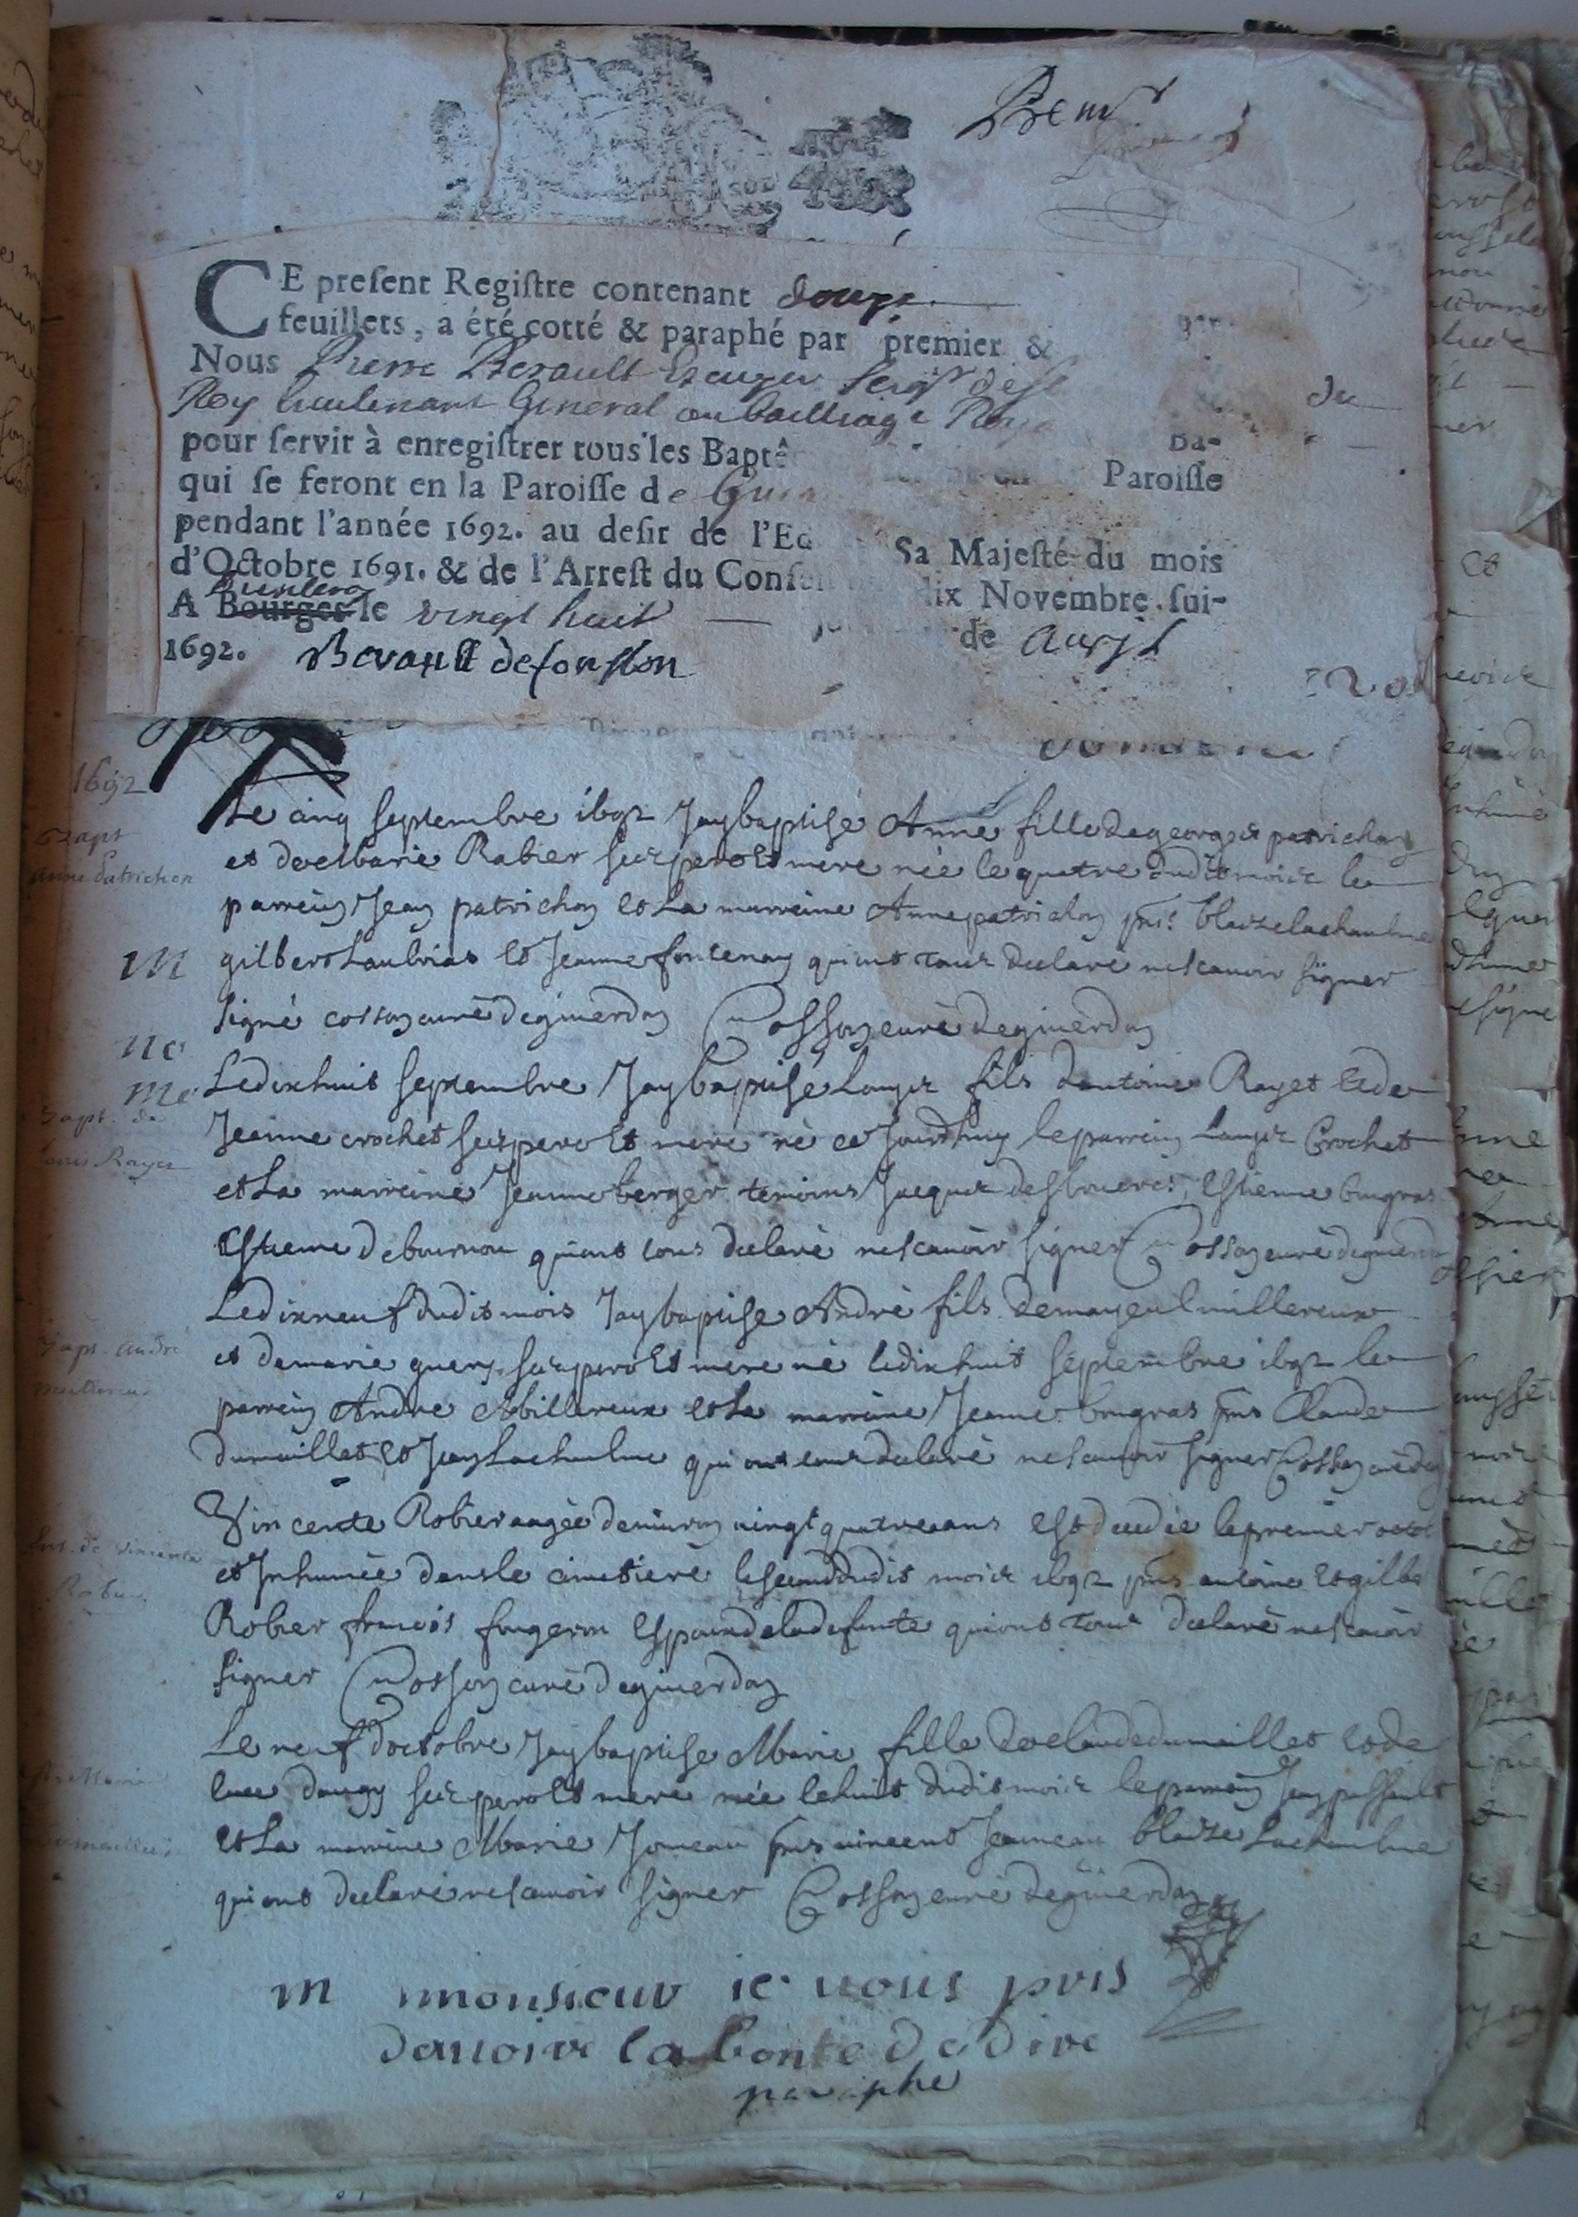 Prem.r
CE present Registre contenant douze
feuillets, a été cotté & paraphé par premier &
Nous Pierre Berault Escuyer Seigr de
Roy Lieutenant General au bailliage Roya du
pour servir à enregistrer tous les Baptê Ba-
qui se feront en la Paroisse de Paroisse
pendant l'année 1692. au desir de l'Ed Sa Majesté du mois
d'Octobre 1691. & de l'Arrest du Conseil dix Novembre sui-
A Bourges le vingt huit de Avril
1692. Berault
1692
Le cinq septembre 1692 Jay baptisé Anne fille de george patrichon
Bapt
anne Patrichon
et de marie Rabier ses pere et mere née le quatre dudit mois le
parrein Jean patrichon et La marreine Anne patrichon pns. blaize lachaulme
m
gilbert Laubrias et Jeanne fontenay qui ont tous declaré ne scavoir signer
signé cosson curé de giverdon Cosson curé de giverdon
no
Le dixhuit septembre Jay baptisé Louys fils dantoine Rayet et de
me
Bapt. de
Louis Rayet
Jeanne crochet ses pere et mere né ce Jourdhuy le parrein Louys Crochet
et La marreine Jeanne berger temoins Jacques desbrueres, Estienne bugras
Estienne debournou qui ont tous declaré ne scavoir signer Cosson curé de giverdon
Le dixneuf dudit mois Jay baptise André fils de mayeul millereux
Bapt. andré
et de marie guery ses pere et mere né le dixhuit septembre 1692 le
parrein André Millereux et La marreine Jeanne bugras pns Claude
dumaillet et Jean Lachaulme qui ont tous declaré ne scavoir signer Cosson curé de g
Vincente Robier aagée denviron vingt quatre ans est decedée le premier octob
Ent. de vincente
Robier
et Inhumée dans le cimetiere le second dudit mois 1692 pns antoine et gilbe
Robier francois fougeron Espoux de la defunte qui ont tous declaré ne scavoir
signer Cosson curé de giverdon
Le neuf doctobre Jay baptise Marie fille de claude dumaillet et de
luce dougy ses pere et mere née le huit dudit mois le parrein Jean passault
et La marreine Marie Joneau pns vincent Jeauneau blaize Lachaulme
qui ont declaré ne scavoir signer Cosson curé de giverdon
m monsieur ie vous pris
dauoire la bonte de dire
paraphe